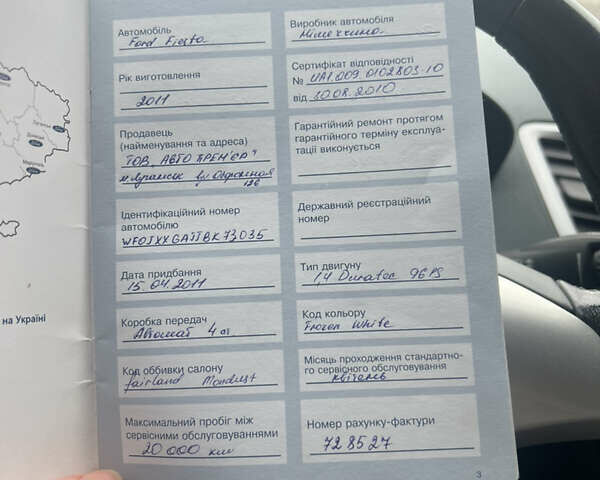 Автомобіль
Ford Fiesta
Рік виготовлення
2011
Продавець
(найменування та адреса)
ТОВ „АВТО ПРЕМ'ЄР"
м. Луганськ вул Оборонная
Ідентифікаційний номер
автомобілю
WFOJXXGAJJBK73035
Дата придбання
15.04.2011
Коробка передач
Автомат 4 ст.
Код оббивки салону
fairland Mondust
Максимальний пробіг між
сервісними обслуговуваннями
20 000 км
Виробник автомобіля
Німеччина
Сертифікат відповідності
№ UA1.009.0102803-10
від 30.08.2010
Гарантійний ремонт протягом
гарантійного терміну експлуа-
тації виконується
Державний реєстраційний
номер
Тип двигуну
1,4 Duratec 96 PS
Код кольору
Frozen White
Місяць проходження стандартно-
го сервісного обслуговування
квітень
Номер рахунку-фактури
728527
3
на Україні